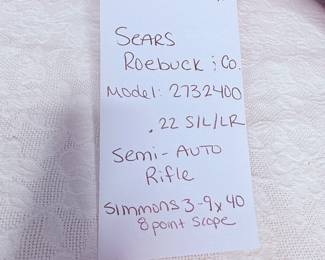 SEARS
ROEBUCK & CO.
MODEL: 2732400
.22 S/L/LR
SEMI-AUTO
RIFLE
SIMMONS 3-9x40
8 POINT SCOPE